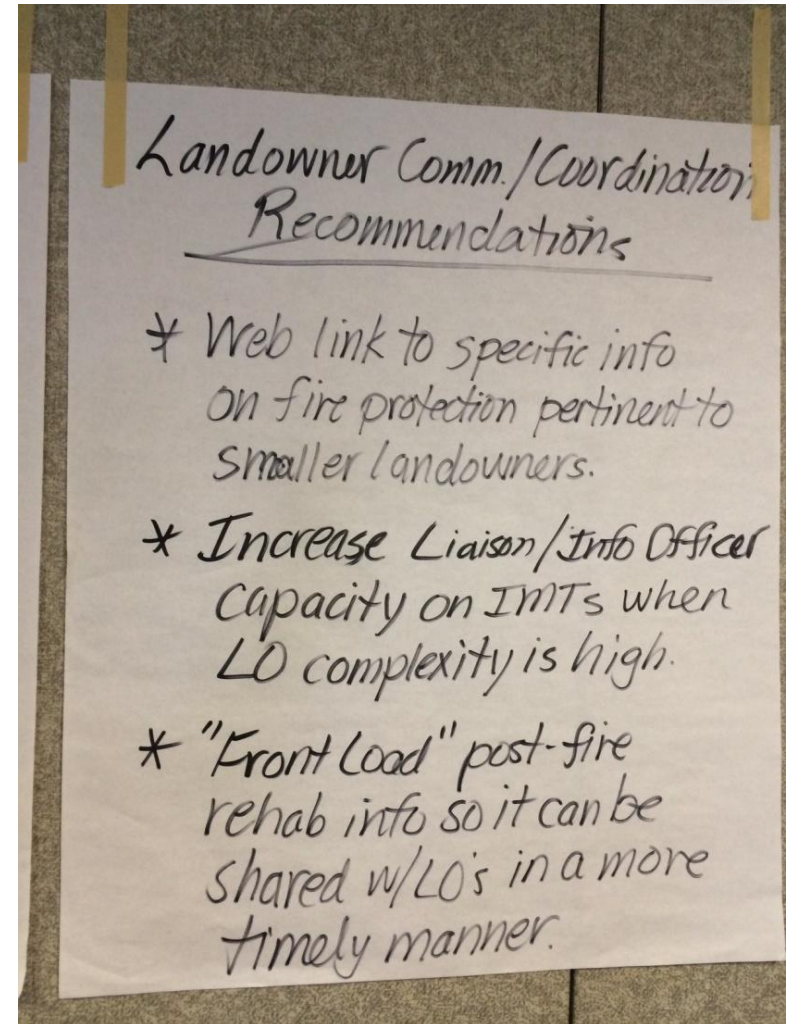 Landowner Comm./Coordination
Recommendations
* Web link to specific info
on fire protection pertinent to
smaller landowners.
* Increase Liaison/Info Officer
capacity on IMTs when
LO complexity is high.
* "Front Load" post-fire
rehab info so it can be
shared w/LO's in a more
timely manner.